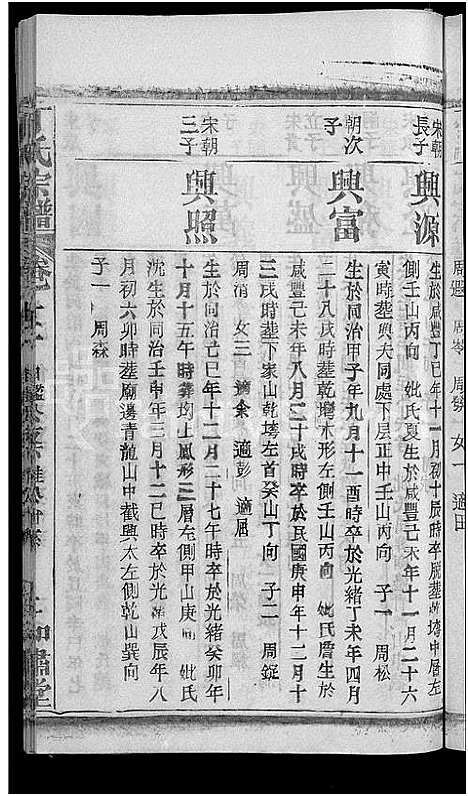 周
周岑
女一
適田
宋朝長子
興源
生於咸豐丁巳年十一月初十辰時卒脫葬墈塆中層左
側壬山丙向 妣氏夏生於咸豐己未年十一月二十六
寅時葬與夫同處下层正中壬山丙向 子一 周松
朝次子
興富
生於同治甲子年九月十一酉時卒於光緒丁未年四月
二十八戌時葬乾塆木形左側壬山丙向 妣氏詹生於
咸豐己未年八月二十戌時卒於民國庚申年十二月十
三戌時葬下家山乾塆左首癸山丁向 子二 周錠
周消 女三 適余 適彭 適屈
宋朝三子
興照
生於同治己巳年十二月二十七午時卒於光緒癸卯年
十月十五午時葬塆上鳳形三層左側甲山庚向 妣氏
沈生於同治壬申年三月十二巳時卒於光 戊辰年八
月初六卯時葬庙邊青龍山中截興太左側乾山巽向
子一 周森
氏宗譜
卷
堂